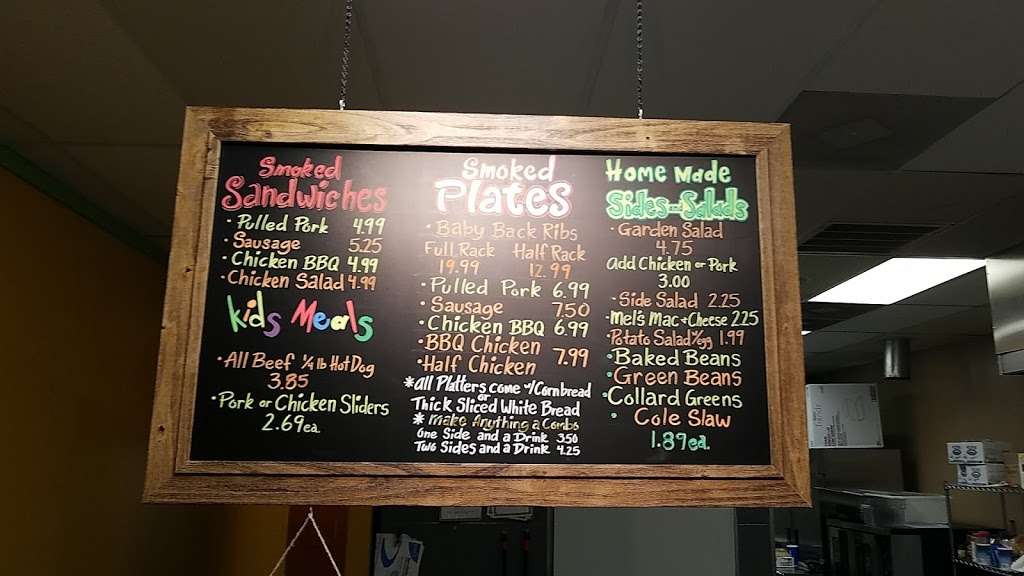 Smoked
Sandwiches
· Pulled Pork 4.99
· Sausage 5.25
· Chicken BBQ 4.99
· Chicken Salad 4.99
Kids Meals
· All Beef 1/4 lb Hot Dog
3.85
· Pork or Chicken Sliders
2.69 ea.
Smoked
Plates
· Baby Back Ribs
Full Rack Half Rack
19.99 12.99
· Pulled Pork 6.99
· Sausage 7.50
· Chicken BBQ 6.99
· BBQ Chicken
· Half Chicken 7.99
* all Platters come w/ Cornbread
or
Thick Sliced White Bread
* Make Anything a Combo
One Side and a Drink 3.50
Two Sides and a Drink 4.25
Home Made
Sides and Salads
· Garden Salad
4.75
add Chicken or Pork
3.00
· Side Salad 2.25
· Mel's Mac + Cheese 2.25
· Potato Salad w/egg 1.99
· Baked Beans
· Green Beans
· Collard Greens
· Cole Slaw
1.89 ea.